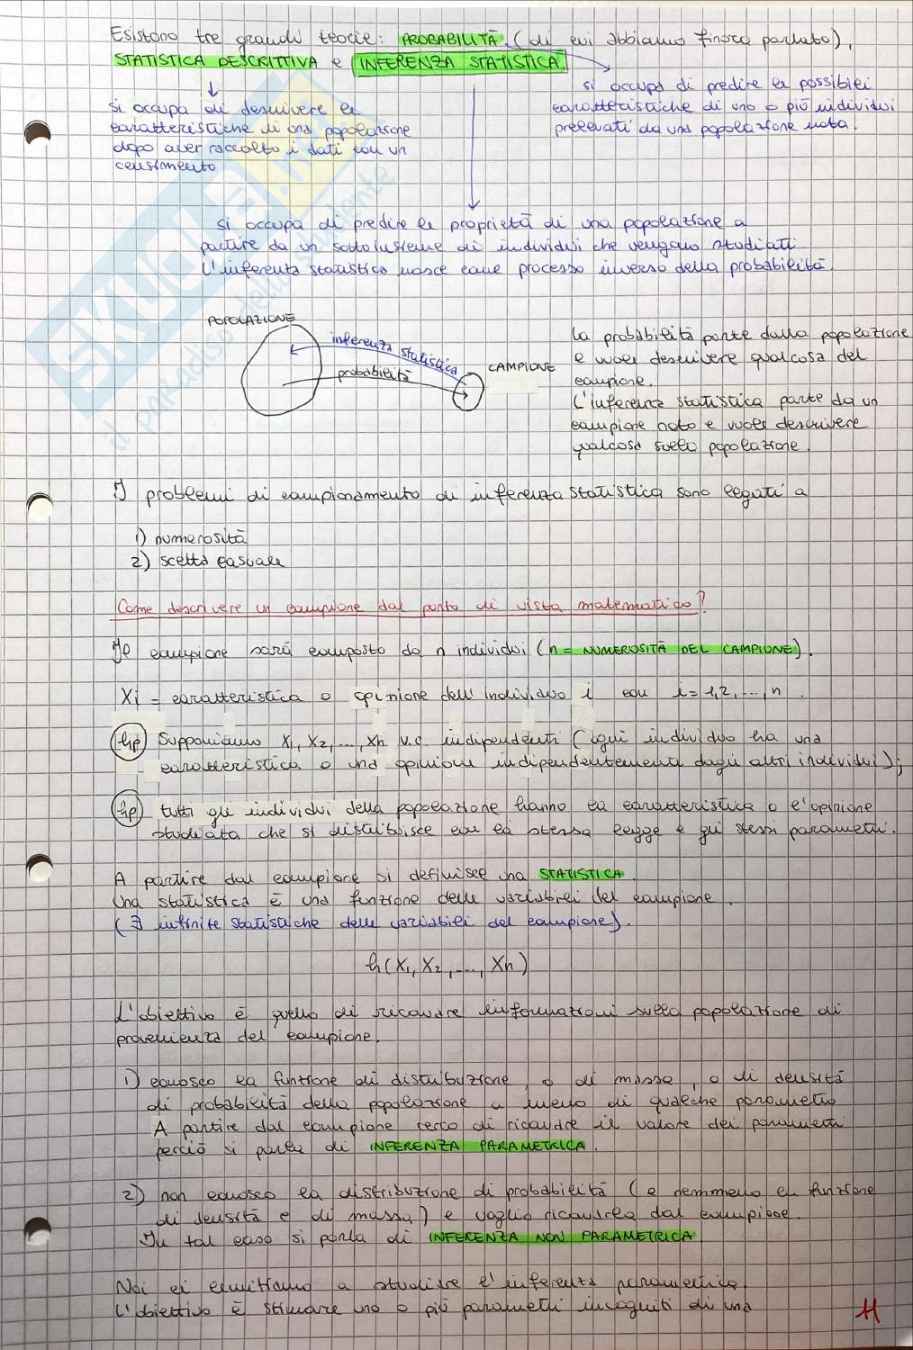 Esistono tre grandi teorie: PROBABILITÀ (di cui abbiamo finora parlato),
STATISTICA DESCRITTIVA e INFERENZA STATISTICA.
si occupa di predire le possibili
caratteristiche di uno o più individui
prelevati da una popolazione nota.
si occupa di descrivere le
caratteristiche di una popolazione
dopo aver raccolto i dati con un
censimento
si occupa di predire le proprietà di una popolazione a
partire da un sottoinsieme di individui che vengono studiati.
L'inferenza statistica nasce come processo inverso della probabilità.
POPOLAZIONE
inferenza statistica
probabilità
CAMPIONE
La probabilità parte dalla popolazione
e vuole descrivere qualcosa del
campione.
L'inferenza statistica parte da un
campione noto e vuole descrivere
qualcosa sulla popolazione.
I problemi di campionamento di inferenza statistica sono legati a
1) numerosità
2) scelta casuale
Come descrivere un campione dal punto di vista matematico?
Il campione sarà composto da n individui (n = NUMEROSITÀ DEL CAMPIONE).
Xi = caratteristica o opinione dell'individuo i con i = 1,2,...,n.
hp Supponiamo X1, X2, ..., Xn v.c. indipendenti (ogni individuo ha una
caratteristica o una opinione indipendentemente dagli altri individui);
hp tutti gli individui della popolazione hanno la caratteristica o l'opinione
studiata che si distribuisce con la stessa legge e gli stessi parametri.
A partire dal campione si definisce una STATISTICA.
Una statistica è una funzione delle variabili del campione.
(∃ infinite statistiche delle variabili del campione).
h(X1, X2, ..., Xn)
L'obiettivo è quello di ricavare informazioni sulla popolazione di
provenienza del campione.
1) conosco la funzione di distribuzione, o di massa, o di densità
di probabilità della popolazione a meno di qualche parametro
A partire dal campione cerco di ricavare il valore dei parametri
perciò si parla di INFERENZA PARAMETRICA.
2) non conosco la distribuzione di probabilità (e nemmeno la funzione
di densità e di massa) e voglio ricavarla dal campione.
In tal caso si parla di INFERENZA NON PARAMETRICA
Noi ci limitiamo a studiare l'inferenza parametrica.
L'obiettivo è stimare uno o più parametri incogniti di una
SKUOLA.net
il paradiso dello studente